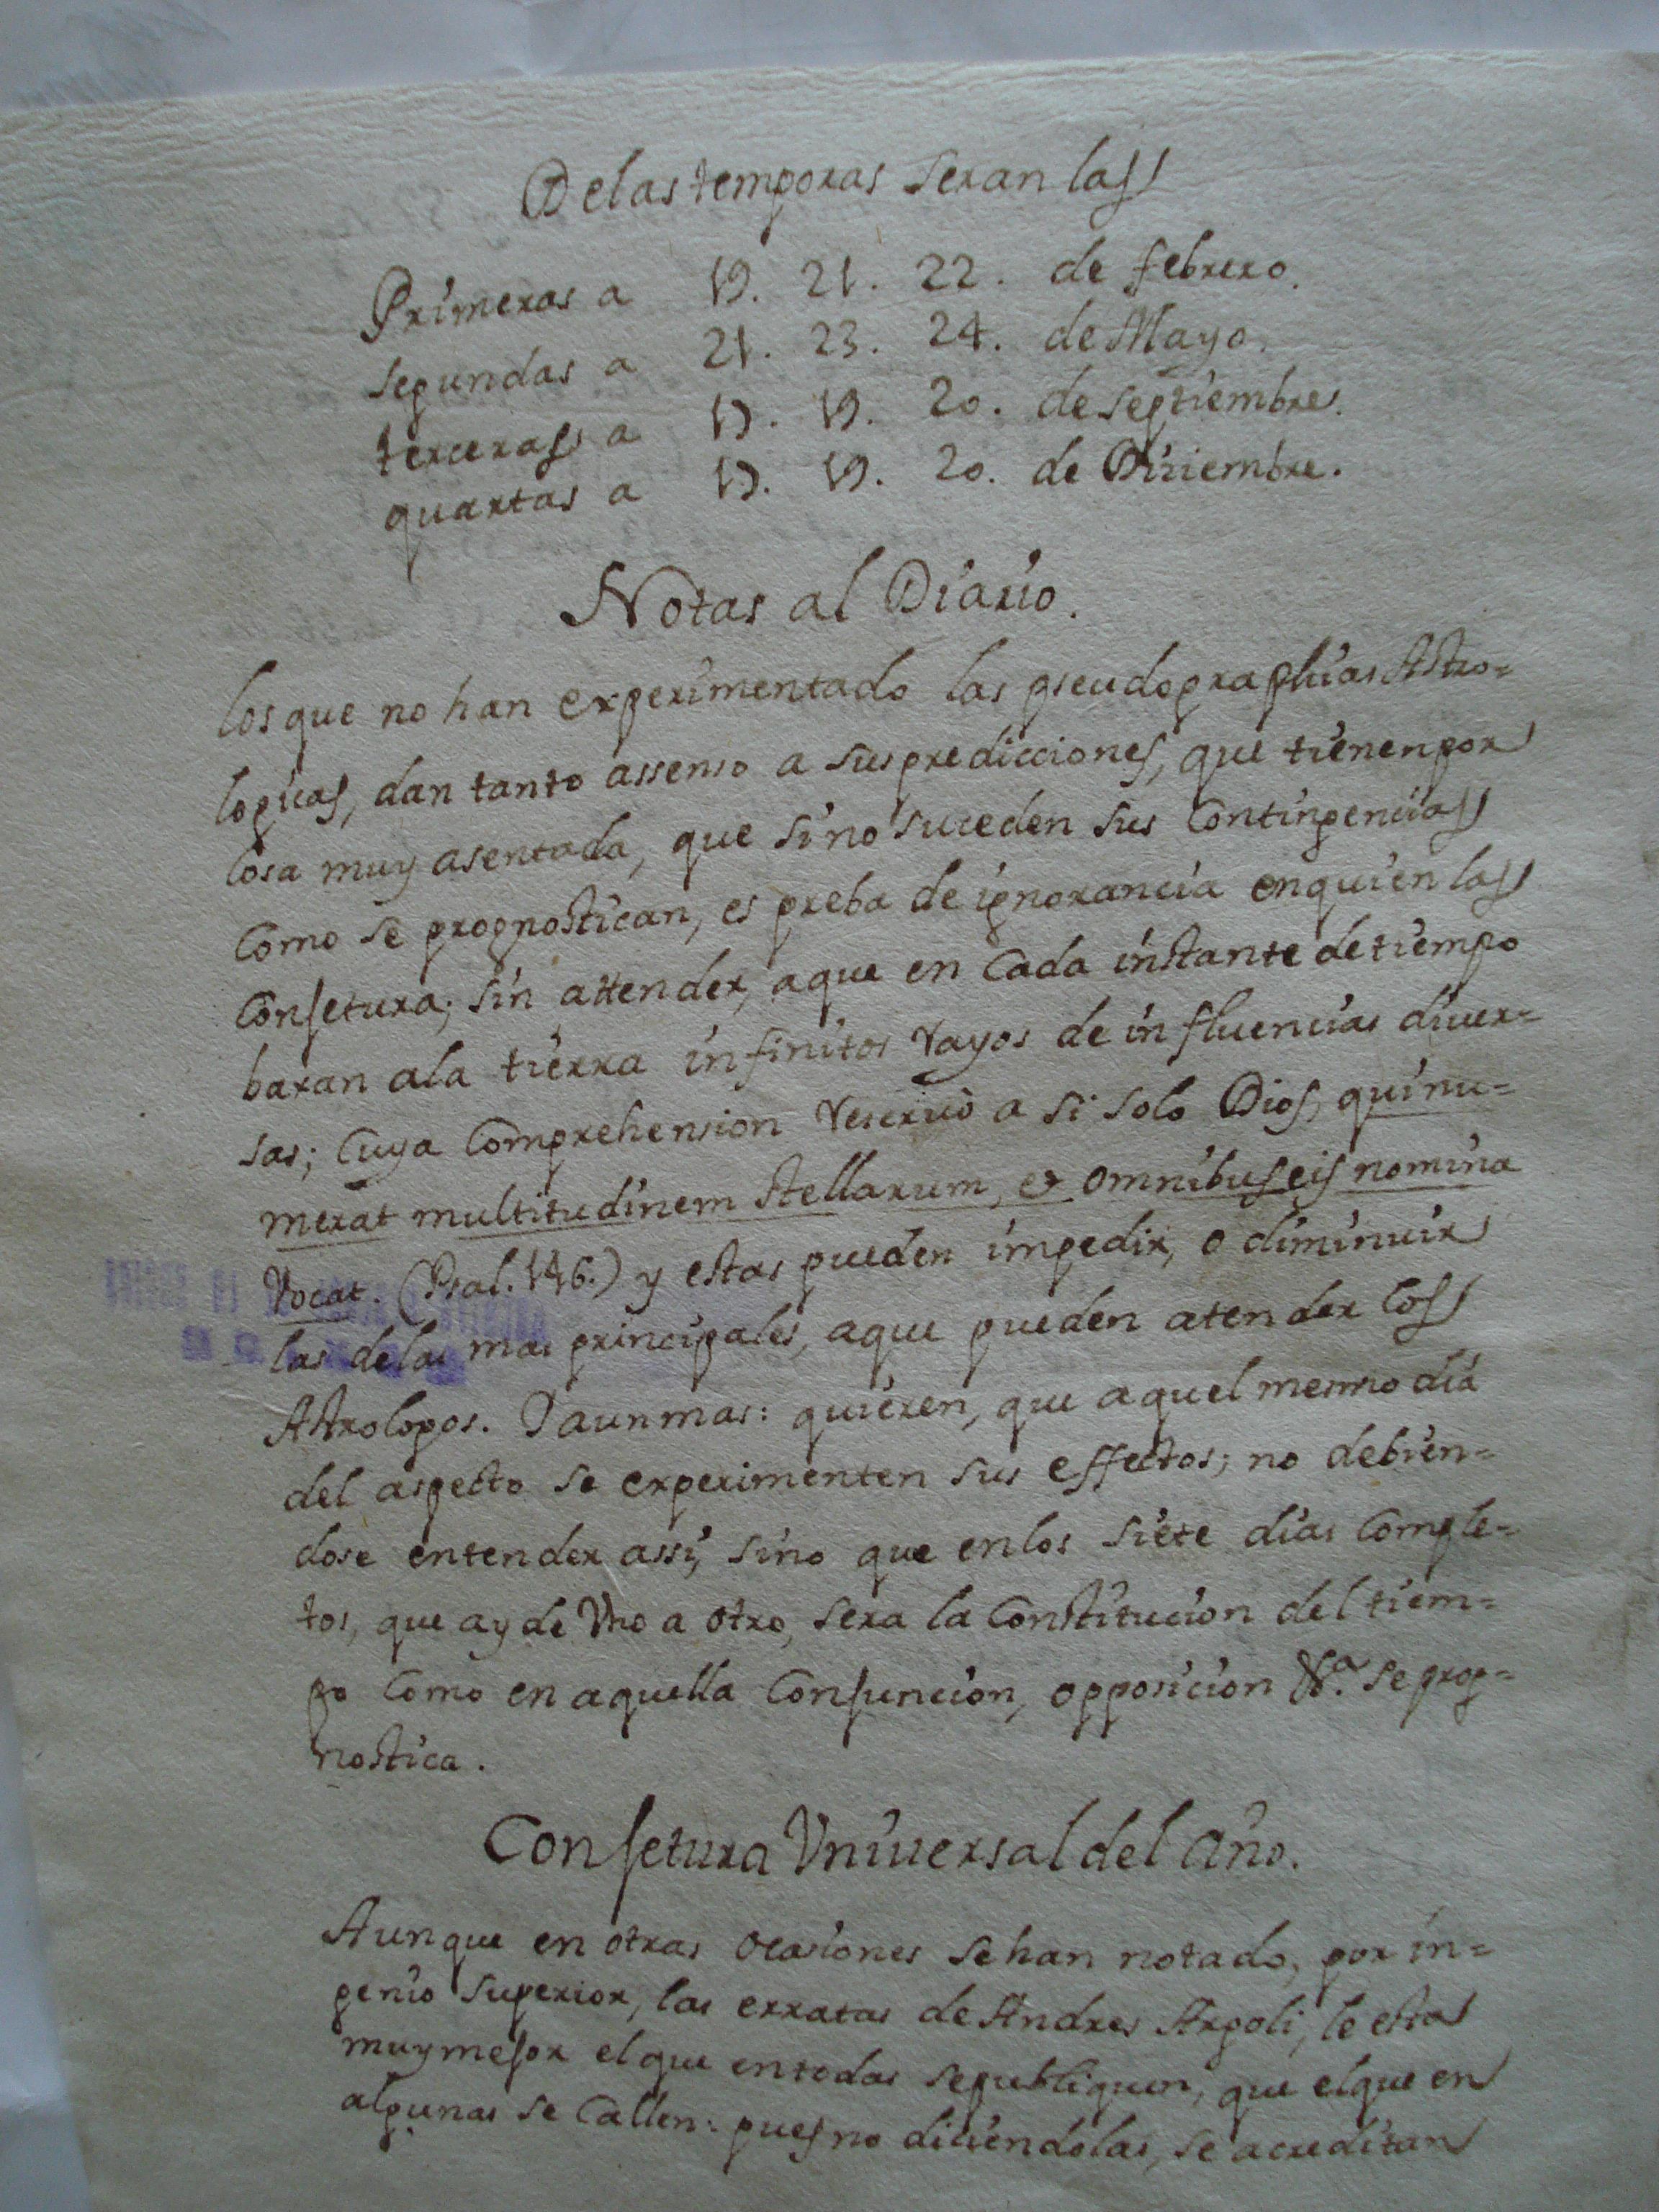 De las temporas seran las
Primeras a 19. 21. 22. de febrero.
segundas a 21. 23. 24. de Mayo.
terceras a 17. 19. 20. de septiembre.
quartas a 17. 19. 20. de Diciembre.
Notas al Diario.
los que no han experimentado las pseudographias Astro=
logicas, dan tanto assenso a sus predicciones, que tienen por
cosa muy asentada, que si no suceden sus contingencias
como se prognostican, es preba de ignorancia en quien las
conjetura; sin attender, a que en cada instante de tiempo
baxan a la tierra infinitos rayos de influencias diver=
sas; cuya comprehension reservò a si solo Dios, qui nu=
merat multitudinem stellarum, et omnibus eis nomina
vocat. (Psal. 146.) y estas pueden impedir, o diminuir
las de las mas principales, a que pueden atender los
Astrologos. Y aun mas: quieren, que aquel mesmo dia
del aspecto se experimenten sus effectos; no debien=
dose entender assi, sino que en los siete dias comple=
tos, que ay de uno a otro, sera la constitucion del tiem=
po como en aquella conjuncion, opposicion &a. se prog=
nostica.
Conjetura Universal del año.
Aunque en otras ocasiones se han notado, por in=
genio superior, las erratas de Andres Argoli, le esta
muy mejor el que en todas se publiquen, que el que en
algunas se callen: pues no diciendolas, se acreditan